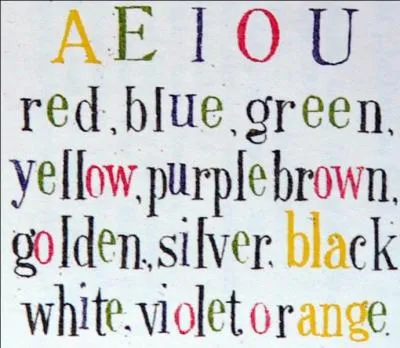 A E I O U
red, blue, green,
yellow, purple brown,
golden, silver, black
white, violet orange.